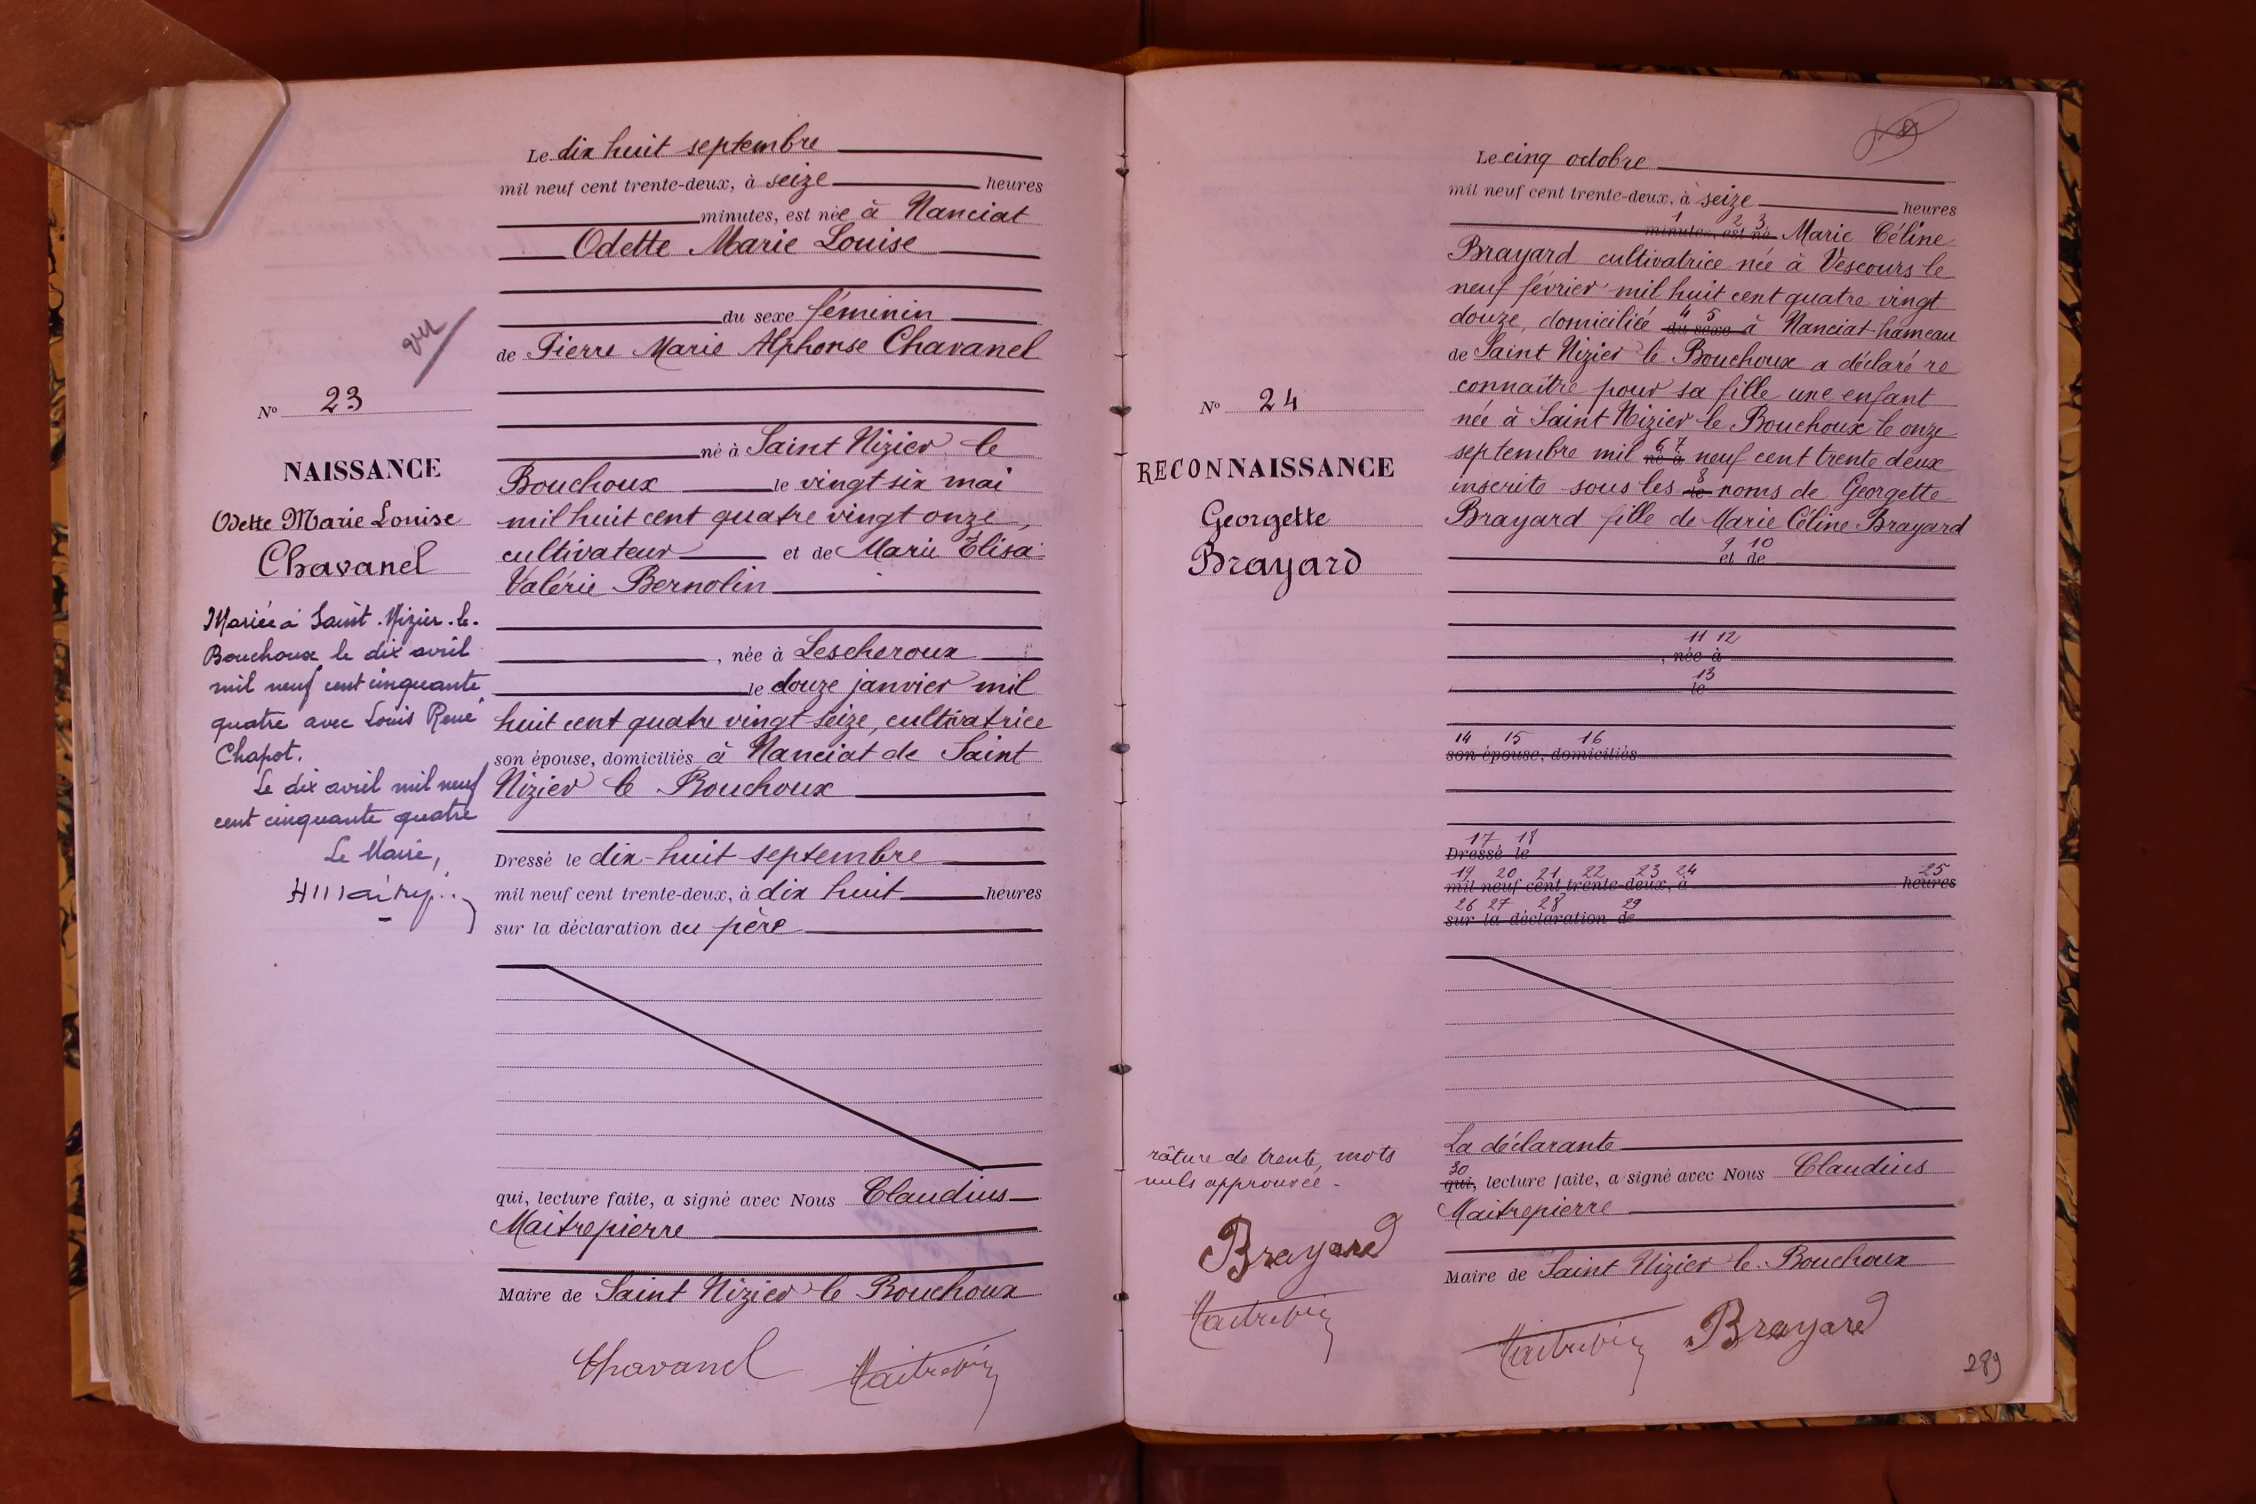 Le dix huit septembre
mil neuf cent trente-deux, à seize heures
minutes, est née à Nanciat
Odette Marie Louise
du sexe féminin
de Pierre Marie Alphonse Chavanel
né à Saint Nizier le
Bouchoux le vingt six mai
mil huit cent quatre vingt onze,
cultivateur et de Marie Elisa
Valérie Bernolin
, née à Lescheroux
le douze janvier mil
huit cent quatre vingt seize, cultivatrice
son épouse, domiciliés à Nanciat de Saint
Nizier le Bouchoux
Dressé le dix-huit septembre
mil neuf cent trente-deux, à dix huit heures
sur la déclaration du père
qui, lecture faite, a signé avec Nous Claudius
Maitrepierre
Maire de Saint Nizier le Bouchoux
Chavanel
vu
No 23
NAISSANCE
Odette Marie Louise
Chavanel
Mariée à Saint-Nizier-le-
Bouchoux le dix avril
mil neuf cent cinquante
quatre avec Louis René
Chapot.
Le dix avril mil neuf
cent cinquante quatre
Le Maire,
No 24
RECONNAISSANCE
Georgette
Brayard
râture de trente mots
nuls approuvée.
Brayard
Le cinq octobre
mil neuf cent trente-deux, à seize heures
1 2 3
minutes, est né Marie Céline
Brayard cultivatrice née à Vescours le
neuf février mil huit cent quatre vingt
4 5
douze, domiciliée du sexe à Nanciat hameau
de Saint Nizier le Bouchoux a déclaré re
connaître pour sa fille une enfant
née à Saint Nizier le Bouchoux le onze
6 7
septembre mil né à neuf cent trente deux
8
inscrite sous les le noms de Georgette
Brayard fille de Marie Céline Brayard
9 10
et de
11 12
, née à
13
le
14 15 16
son épouse, domiciliés
17 18
Dressé le
19 20 21 22 23 24 25
mil neuf cent trente-deux, à heures
26 27 28 29
sur la déclaration de
La déclarante
30
qui, lecture faite, a signé avec Nous Claudius
Maitrepierre
Maire de Saint Nizier le Bouchoux
Brayard
289